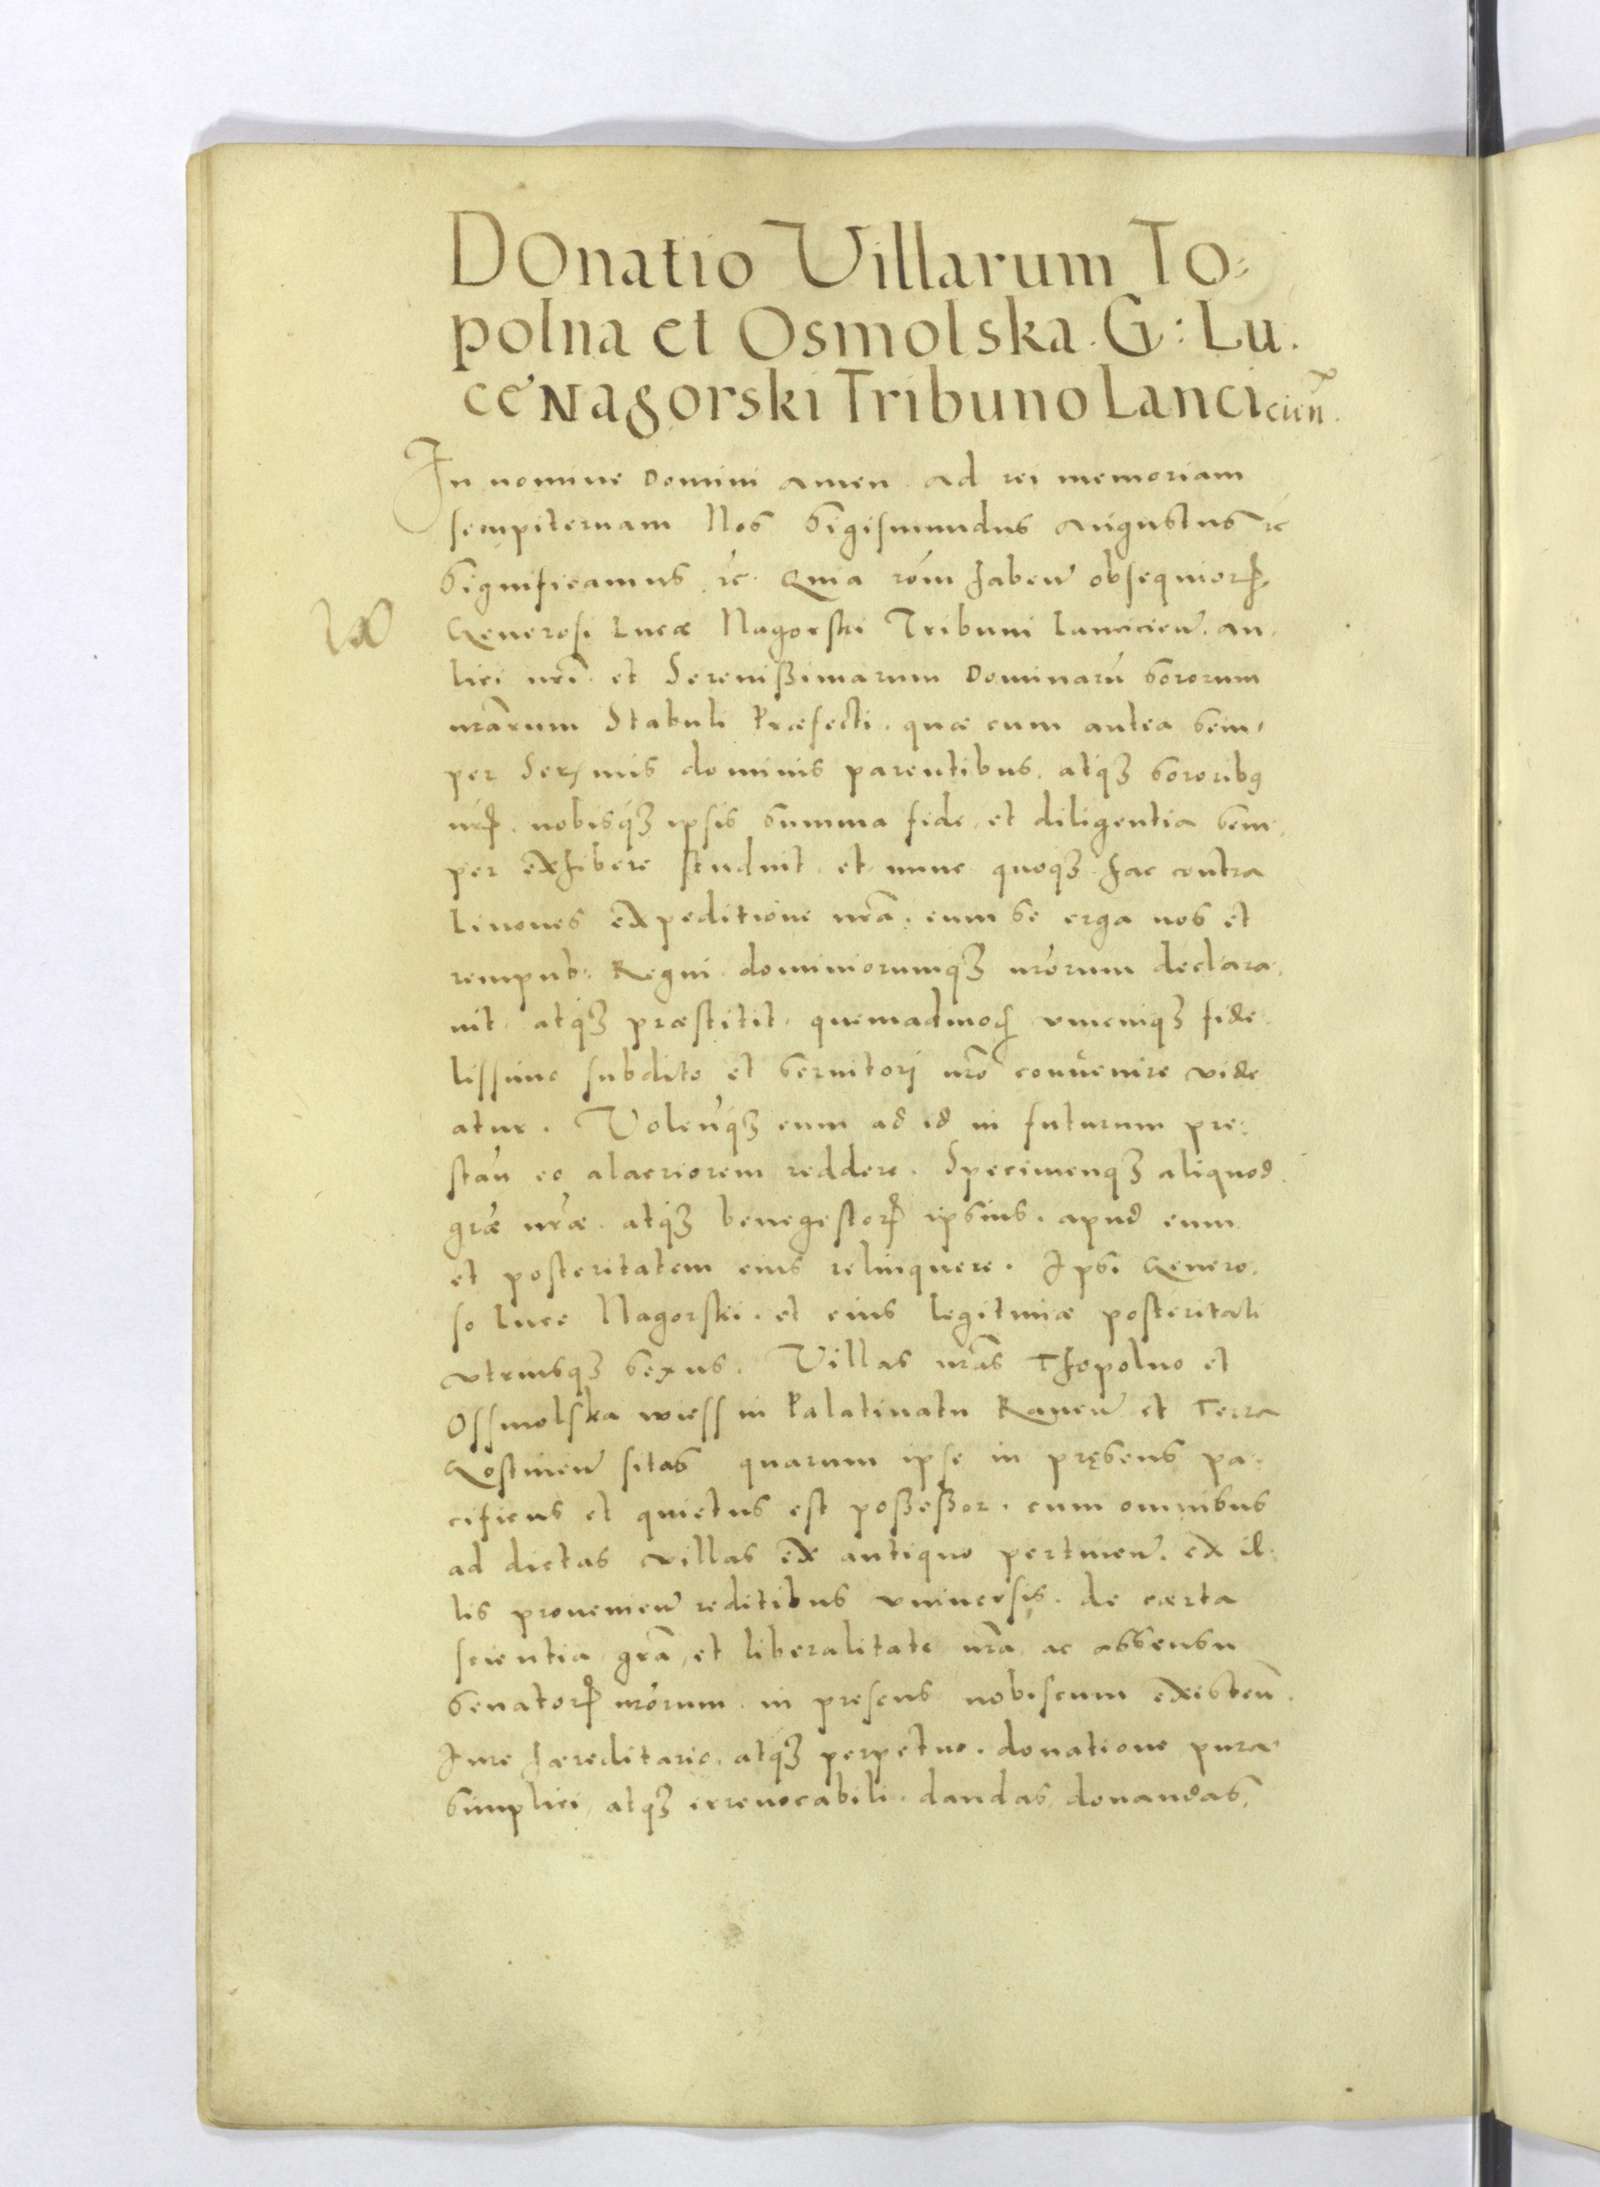 DOnatio Villarum To⸗
polna et Osmolska. G: Lu.
ce Nagorski Tribuno Lanciciẽn.
In nomine Domini amen. ad rei memoriam
sempiternam Nos Sigismundus Augustus ꝛc
Significamus ꝛc. Quia rõm habeñ obsequiorꝝ
Generosi Lucæ Nagorski Tribuni Lancicieñ. au⸗
lici nrĩ. et Serenißimarum Dominarũ Sororum
nrãrum Stabuli Præfecti. quæ cum antea sem⸗
per Serenmis dominis parentibus. atqꝫ sororibꝰ
nrꝭ. nobisqꝫ ipsis summa fide, et diligentia sem⸗
per exhibere studuit. et nunc quoqꝫ hac contra
Livones expeditione nrã. eum se erga nos et
rempub: Regni dominiorumqꝫ nrõrum declara⸗
vit. atqꝫ præstitit. quemadmoꝺ vnicuiqꝫ fide⸗
lissimo subdito et servitori nrõ convenire vide
atur. Voleñqꝫ eum ad id in futurum pre⸗
stañ eo alacriorem reddere. Specimenqꝫ aliquod
grãe nrãe. atqꝫ benegestorꝝ ipsius. apud eum
et posteritatem eius relinquere. Ipsi Genero⸗
so Luce Nagorski. et eius legitimæ posteritati
vtriusqꝫ sexus. Villas nrãs Thopolno et
Ossmolska wiess in Palatinatu Raveñ et Terra
Gostineñ sitas quarum ipse in pręsens pa⸗
cificus et quietus est poßeßor. cum omnibus
ad dictas villas ex antiquo pertineñ. ex il⸗
lis provenieñ reditibus vniversis. de cærta
scientia grã, et liberalitate nrã ac assensu
Senatorꝝ nrõrum. in presens nobiscum existeñ.
Iure hæreditario. atqꝫ perpetuo. donatione pura
simplici, atqꝫ irrevocabili. dandas, donandas,